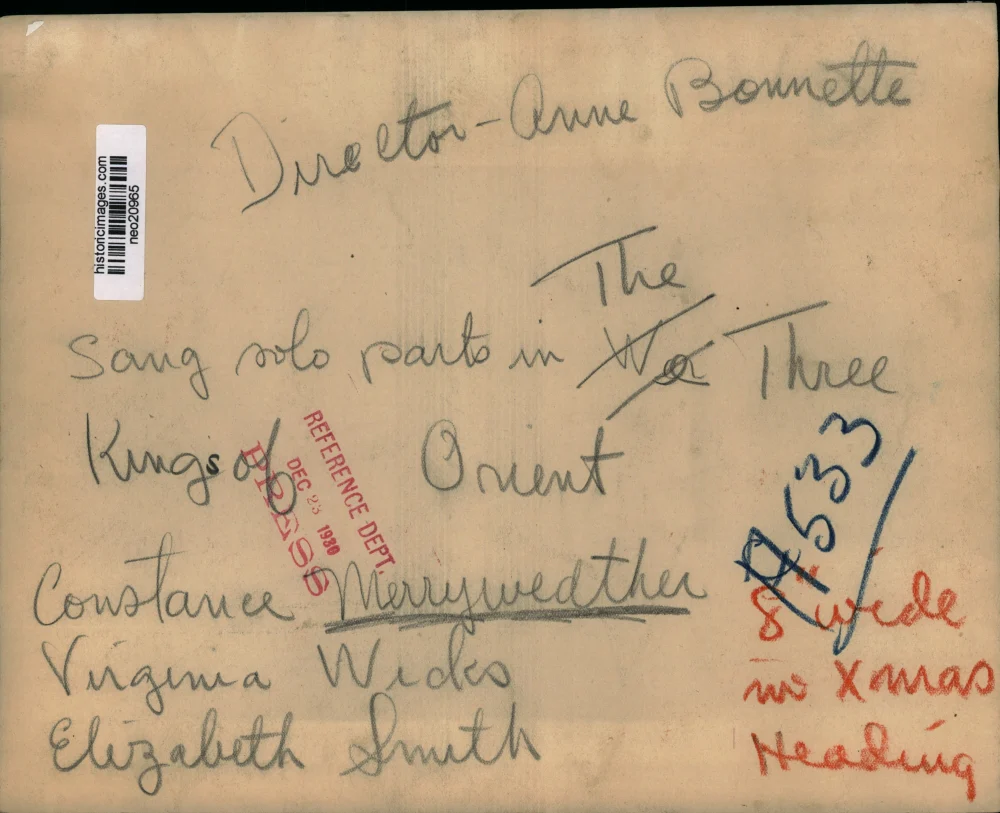 Director - Anne Bonnette
historicimages.com
neo20965
The
Sang solo parts in We Three
Kings of Orient
REFERENCE DEPT.
DEC 23 1980
PRESS
Constance Merryweather
Virginia Wicks
Elizabeth Smith
8" wide
in Xmas
Heading